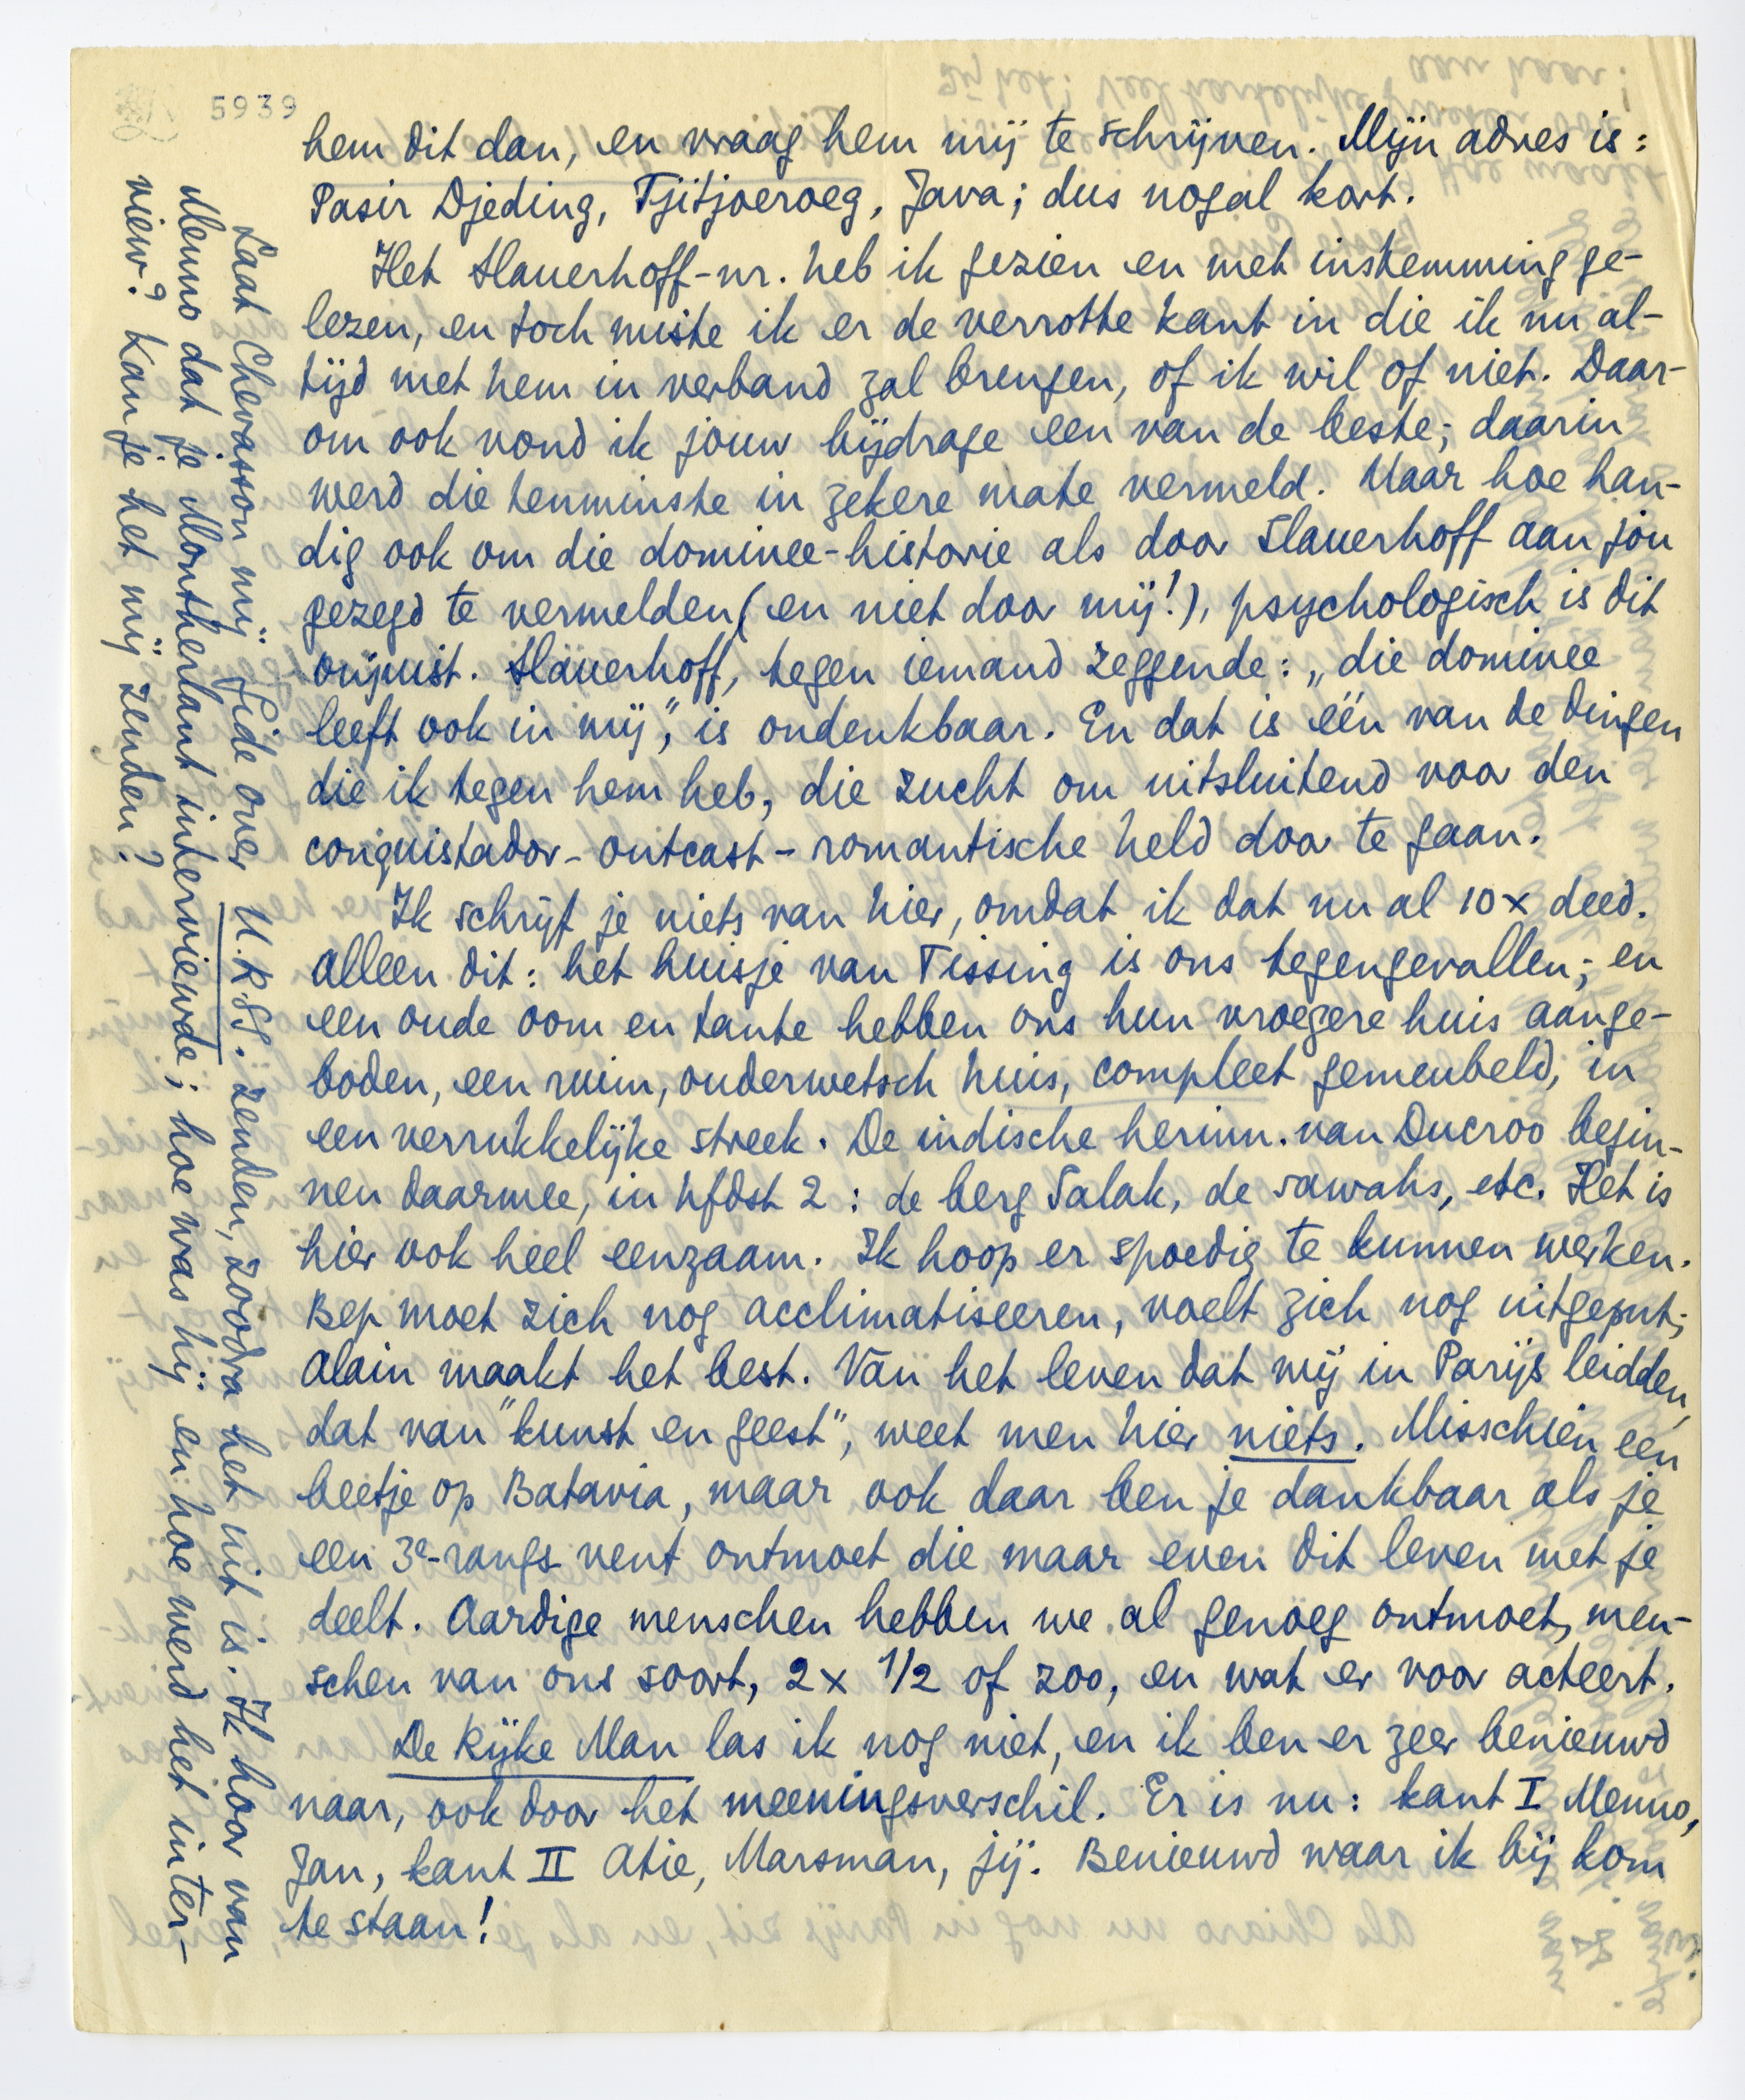 5939
hem dit dan, en vraag hem mij te schrijven. Mijn adres is:
Pasir Djeding, Tjitjoeroeg, Java; dus nogal kort.
Het Slauerhoff-nr. heb ik gezien en met instemming ge-
lezen, en toch miste ik er de verrotte kant in die ik nu al-
tijd met hem in verband zal brengen, of ik wil of niet. Daar-
om ook vond ik jouw bijdrage een van de beste; daarin
werd die tenminste in zekere mate vermeld. Maar hoe han-
dig ook om die dominee-historie als door Slauerhoff aan jou
gezegd te vermelden (en niet door mij!), psychologisch is dit
onjuist. Slauerhoff, tegen iemand zeggende: „die dominee
leeft ook in mij", is ondenkbaar. En dat is één van de dingen
die ik tegen hem heb, die zucht om uitsluitend voor den
conquistador-outcast-romantische held door te gaan.
Ik schrijf je niets van hier, omdat ik dat nu al 10 x deed.
Alleen dit: het huisje van Tissing is ons tegengevallen; en
een oude oom en tante hebben ons hun vroegere huis aange-
boden, een ruim, ouderwetsch huis, compleet gemeubeld, in
een verrukkelijke streek. De indische herinn. van Ducroo begin-
nen daarmee, in hfdst 2: de berg Salak, de sawahs, etc. Het is
hier ook heel eenzaam. Ik hoop er spoedig te kunnen werken.
Bep moet zich nog acclimatiseeren, voelt zich nog uitgeput;
Alain maakt het best. Van het leven dat wij in Parijs leidden,
dat van "kunst en geest", weet men hier niets. Misschien een
beetje op Batavia, maar ook daar ben je dankbaar als je
een 3e-rangs vent ontmoet die maar even dit leven met je
deelt. Aardige menschen hebben we al genoeg ontmoet, men-
schen van ons soort, 2 x 1/2 of zoo, en wat er voor acteert.
De Rijke Man las ik nog niet, en ik ben er zeer benieuwd
naar, ook door het meeningsverschil. Er is nu: kant I Menno,
Jan, kant II Atie, Marsman, jij. Benieuwd waar ik bij kom
te staan!
Laat Chevasson mij Gide over U.R.S.S. zenden, zoodra het uit is. Ik hoor van
Menno dat je Montherlant interviewde; hoe was hij en hoe werd het inter-
view? Kan je het mij zenden?